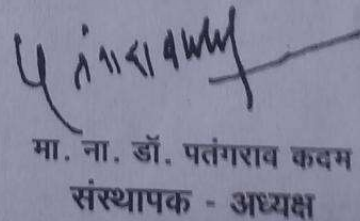 मा. ना. डॉ. पतंगराव कदम
संस्थापक - अध्यक्ष